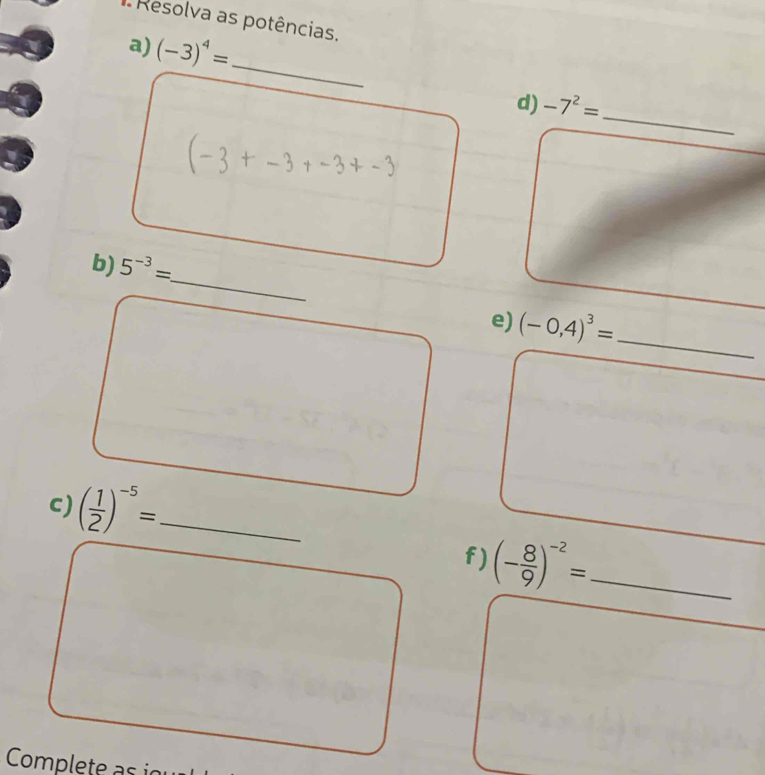 1. Resolva as potências.
a) (−3)⁴ = ____
(-3 + -3 + -3 + -3
b) 5⁻³ = ____
c) (1/2)⁻⁵ = ____
d) −7² = ____
e) (−0,4)³ = ____
f) (−8/9)⁻² = ____
Complete as